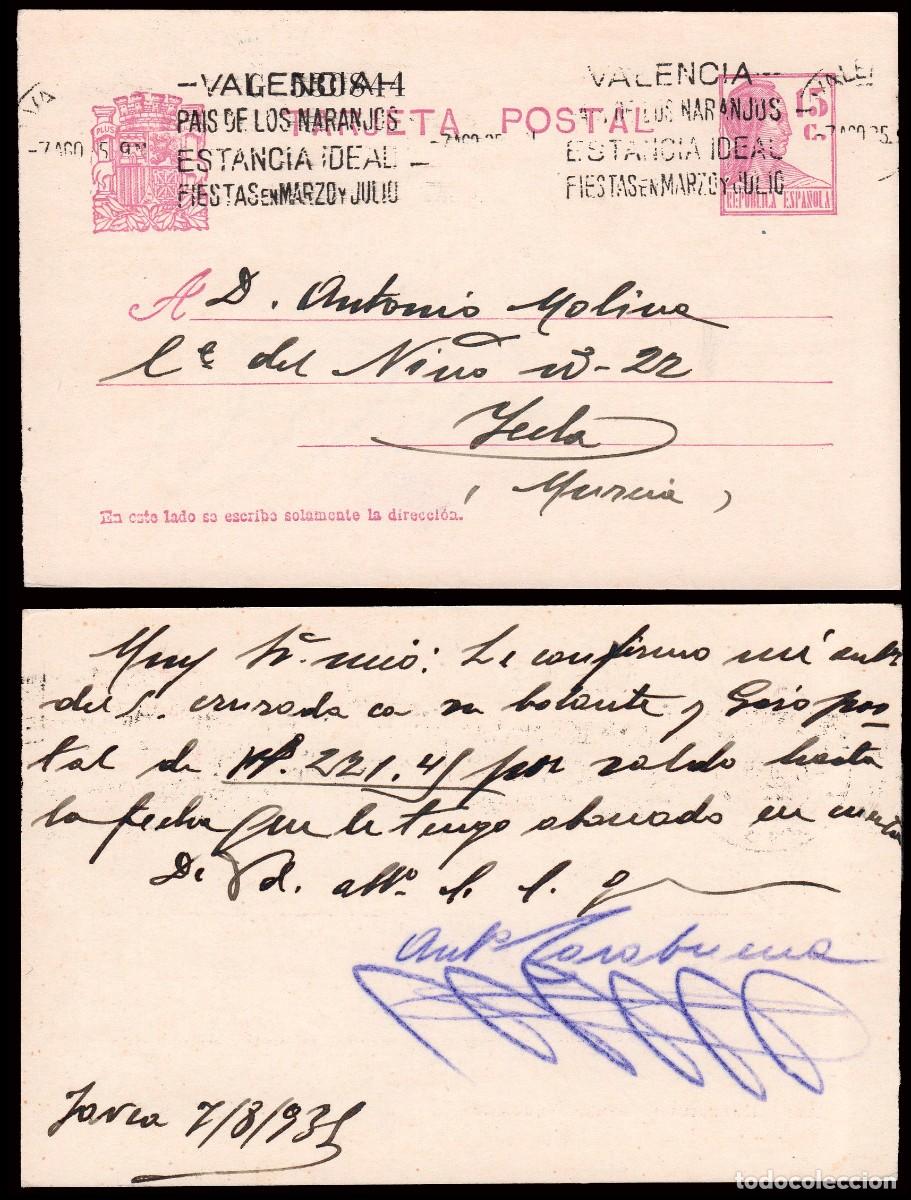 -VALENCIA-
PAIS DE LOS NARANJOS
ESTANCIA IDEAL
FIESTAS EN MARZO Y JULIO
TARJETA POSTAL
VALENCIA
DE LOS NARANJOS
ESTANCIA IDEAL
FIESTAS EN MARZO Y JULIO
-7 AGO 35
15 C.
REPUBLICA ESPAÑOLA
PLUS
A D. Antonio Molina
C.e del Niño nº - 22
Yecla
(Murcia)
En este lado se escribe solamente la dirección.
Muy Sr. mio: Le confirmo mi ante
del 5. cruzada con su volante y Giro pos-
tal de Pts. 221.45 por saldo hasta
la fecha que le tengo abonado en cuenta
De Vd. atto. s. s. q
Antº
Javea 7/8/935
todocoleccion